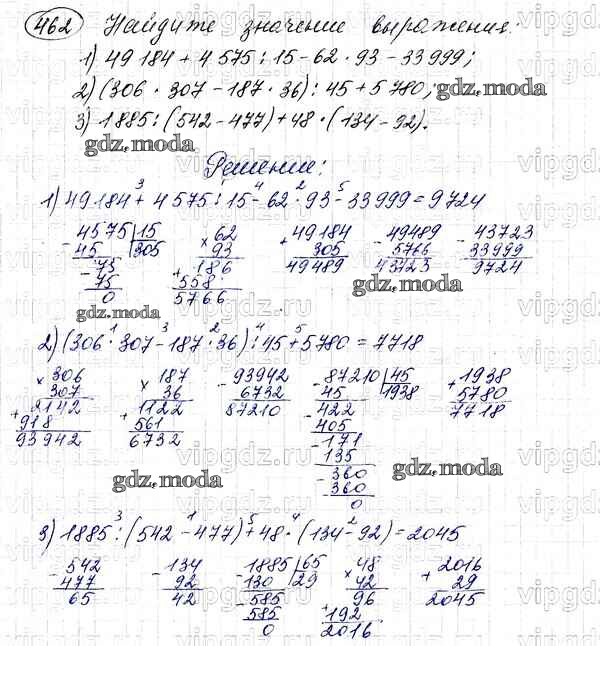 462 Найдите значение выражения:
1) 49 184 + 4 575 : 15 - 62 · 93 - 33 999;
2) (306 · 307 - 187 · 36) : 45 + 5 780; gdz.moda
3) 1885 : (542 - 477) + 48 · (134 - 92).
gdz.moda
Решение:
1) 49 184 + 4 575 : 15 - 62 · 93 - 33 999 = 9724
3 1 4 2 5
4575 15 62 49184 49489 43723
45 305 93 305 5766 33999
75 186 49489 43723 9724
75 558
0 5766
gdz.moda gdz.moda
2) (306 · 307 - 187 · 36) : 45 + 5780 = 7718
1 3 2 4 5
306 187 93942 87210 45 1938
307 36 6732 45 1938 5780
2142 1122 87210 422 7718
918 561 405
93942 6732 171
135
360
360
0
gdz.moda gdz.moda gdz.moda
3) 1885 : (542 - 477) + 48 · (134 - 92) = 2045
3 1 5 4 2
542 134 1885 65 48 2016
477 92 130 29 42 29
65 42 585 96 2045
585 192
0 2016
vipgdz.ru